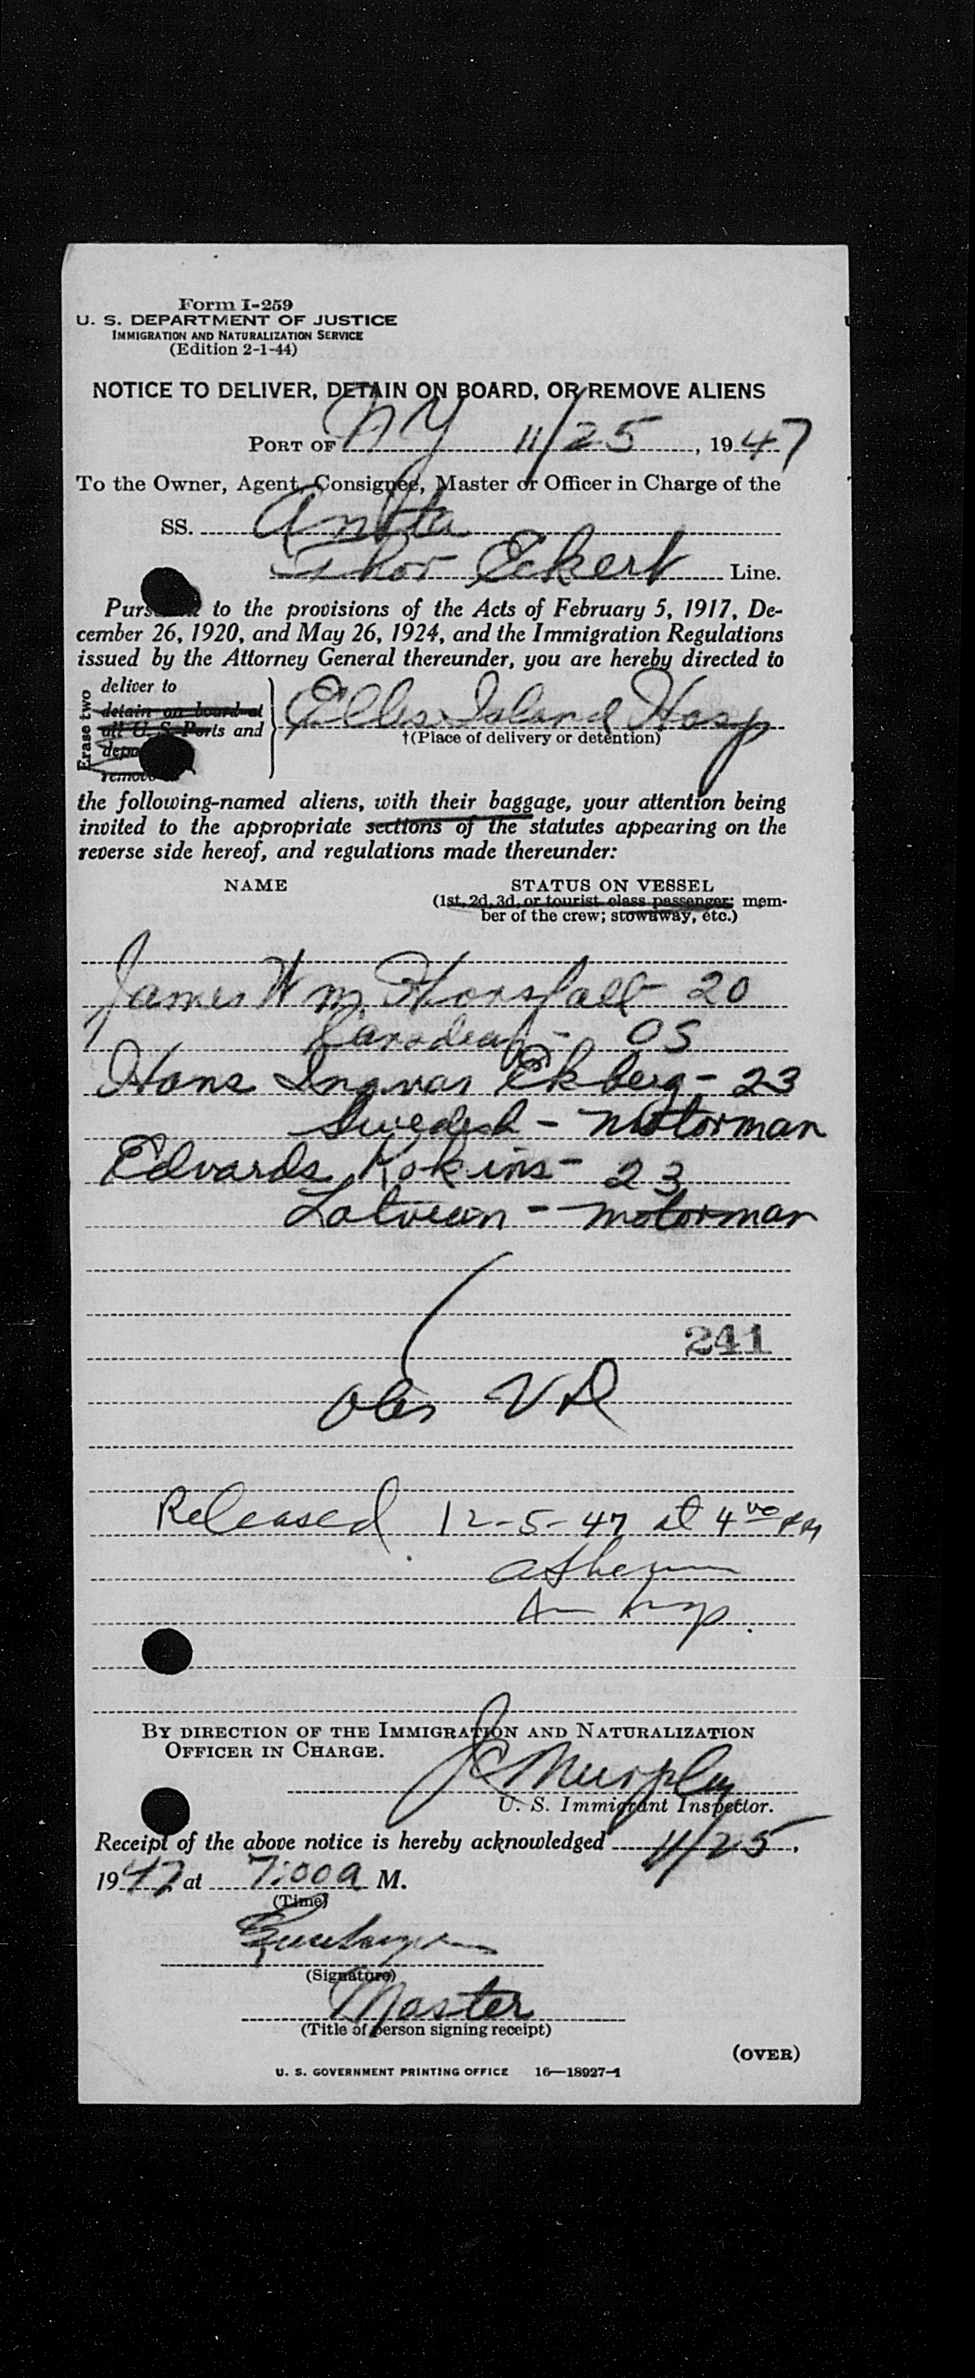 Form I-259
U. S. DEPARTMENT OF JUSTICE
IMMIGRATION AND NATURALIZATION SERVICE
(Edition 2-1-44)
NOTICE TO DELIVER, DETAIN ON BOARD, OR REMOVE ALIENS
PORT OF NY 11/25, 1947
To the Owner, Agent, Consignee, Master or Officer in Charge of the
SS. Anita
Thor Eckert Line.
Pursuant to the provisions of the Acts of February 5, 1917, De-
cember 26, 1920, and May 26, 1924, and the Immigration Regulations
issued by the Attorney General thereunder, you are hereby directed to
Erase two
deliver to
detain on board at
all U. S. Ports and
remove
Ellis Island Hosp
†(Place of delivery or detention)
the following-named aliens, with their baggage, your attention being
invited to the appropriate sections of the statutes appearing on the
reverse side hereof, and regulations made thereunder:
NAME STATUS ON VESSEL
(1st, 2d, 3d, or tourist class passenger; mem-
ber of the crew; stowaway, etc.)
James Wm. Horsfall - 20
Canadian - OS
Hans Ingvar Ekberg - 23
Swedish - Motorman
Edvards Kokins - 23
Latvian - motorman
241
VD
Released 12-5-47 at 4 00 PM
J C Murphy
BY DIRECTION OF THE IMMIGRATION AND NATURALIZATION
OFFICER IN CHARGE.
U. S. Immigrant Inspector.
Receipt of the above notice is hereby acknowledged 11/25,
1947 at 7:00 a M.
(Time)
(Signature)
Master
(Title of person signing receipt)
(OVER)
U. S. GOVERNMENT PRINTING OFFICE 16—18927-1